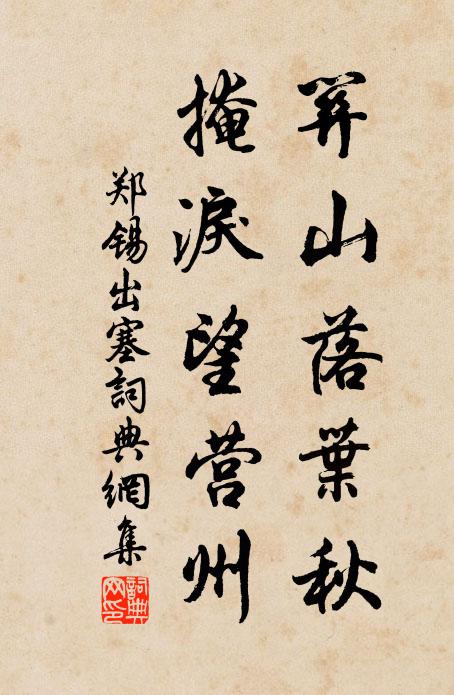 関山落葉秋
掩淚望营州
郑锡出塞詞典網集
詞典网印